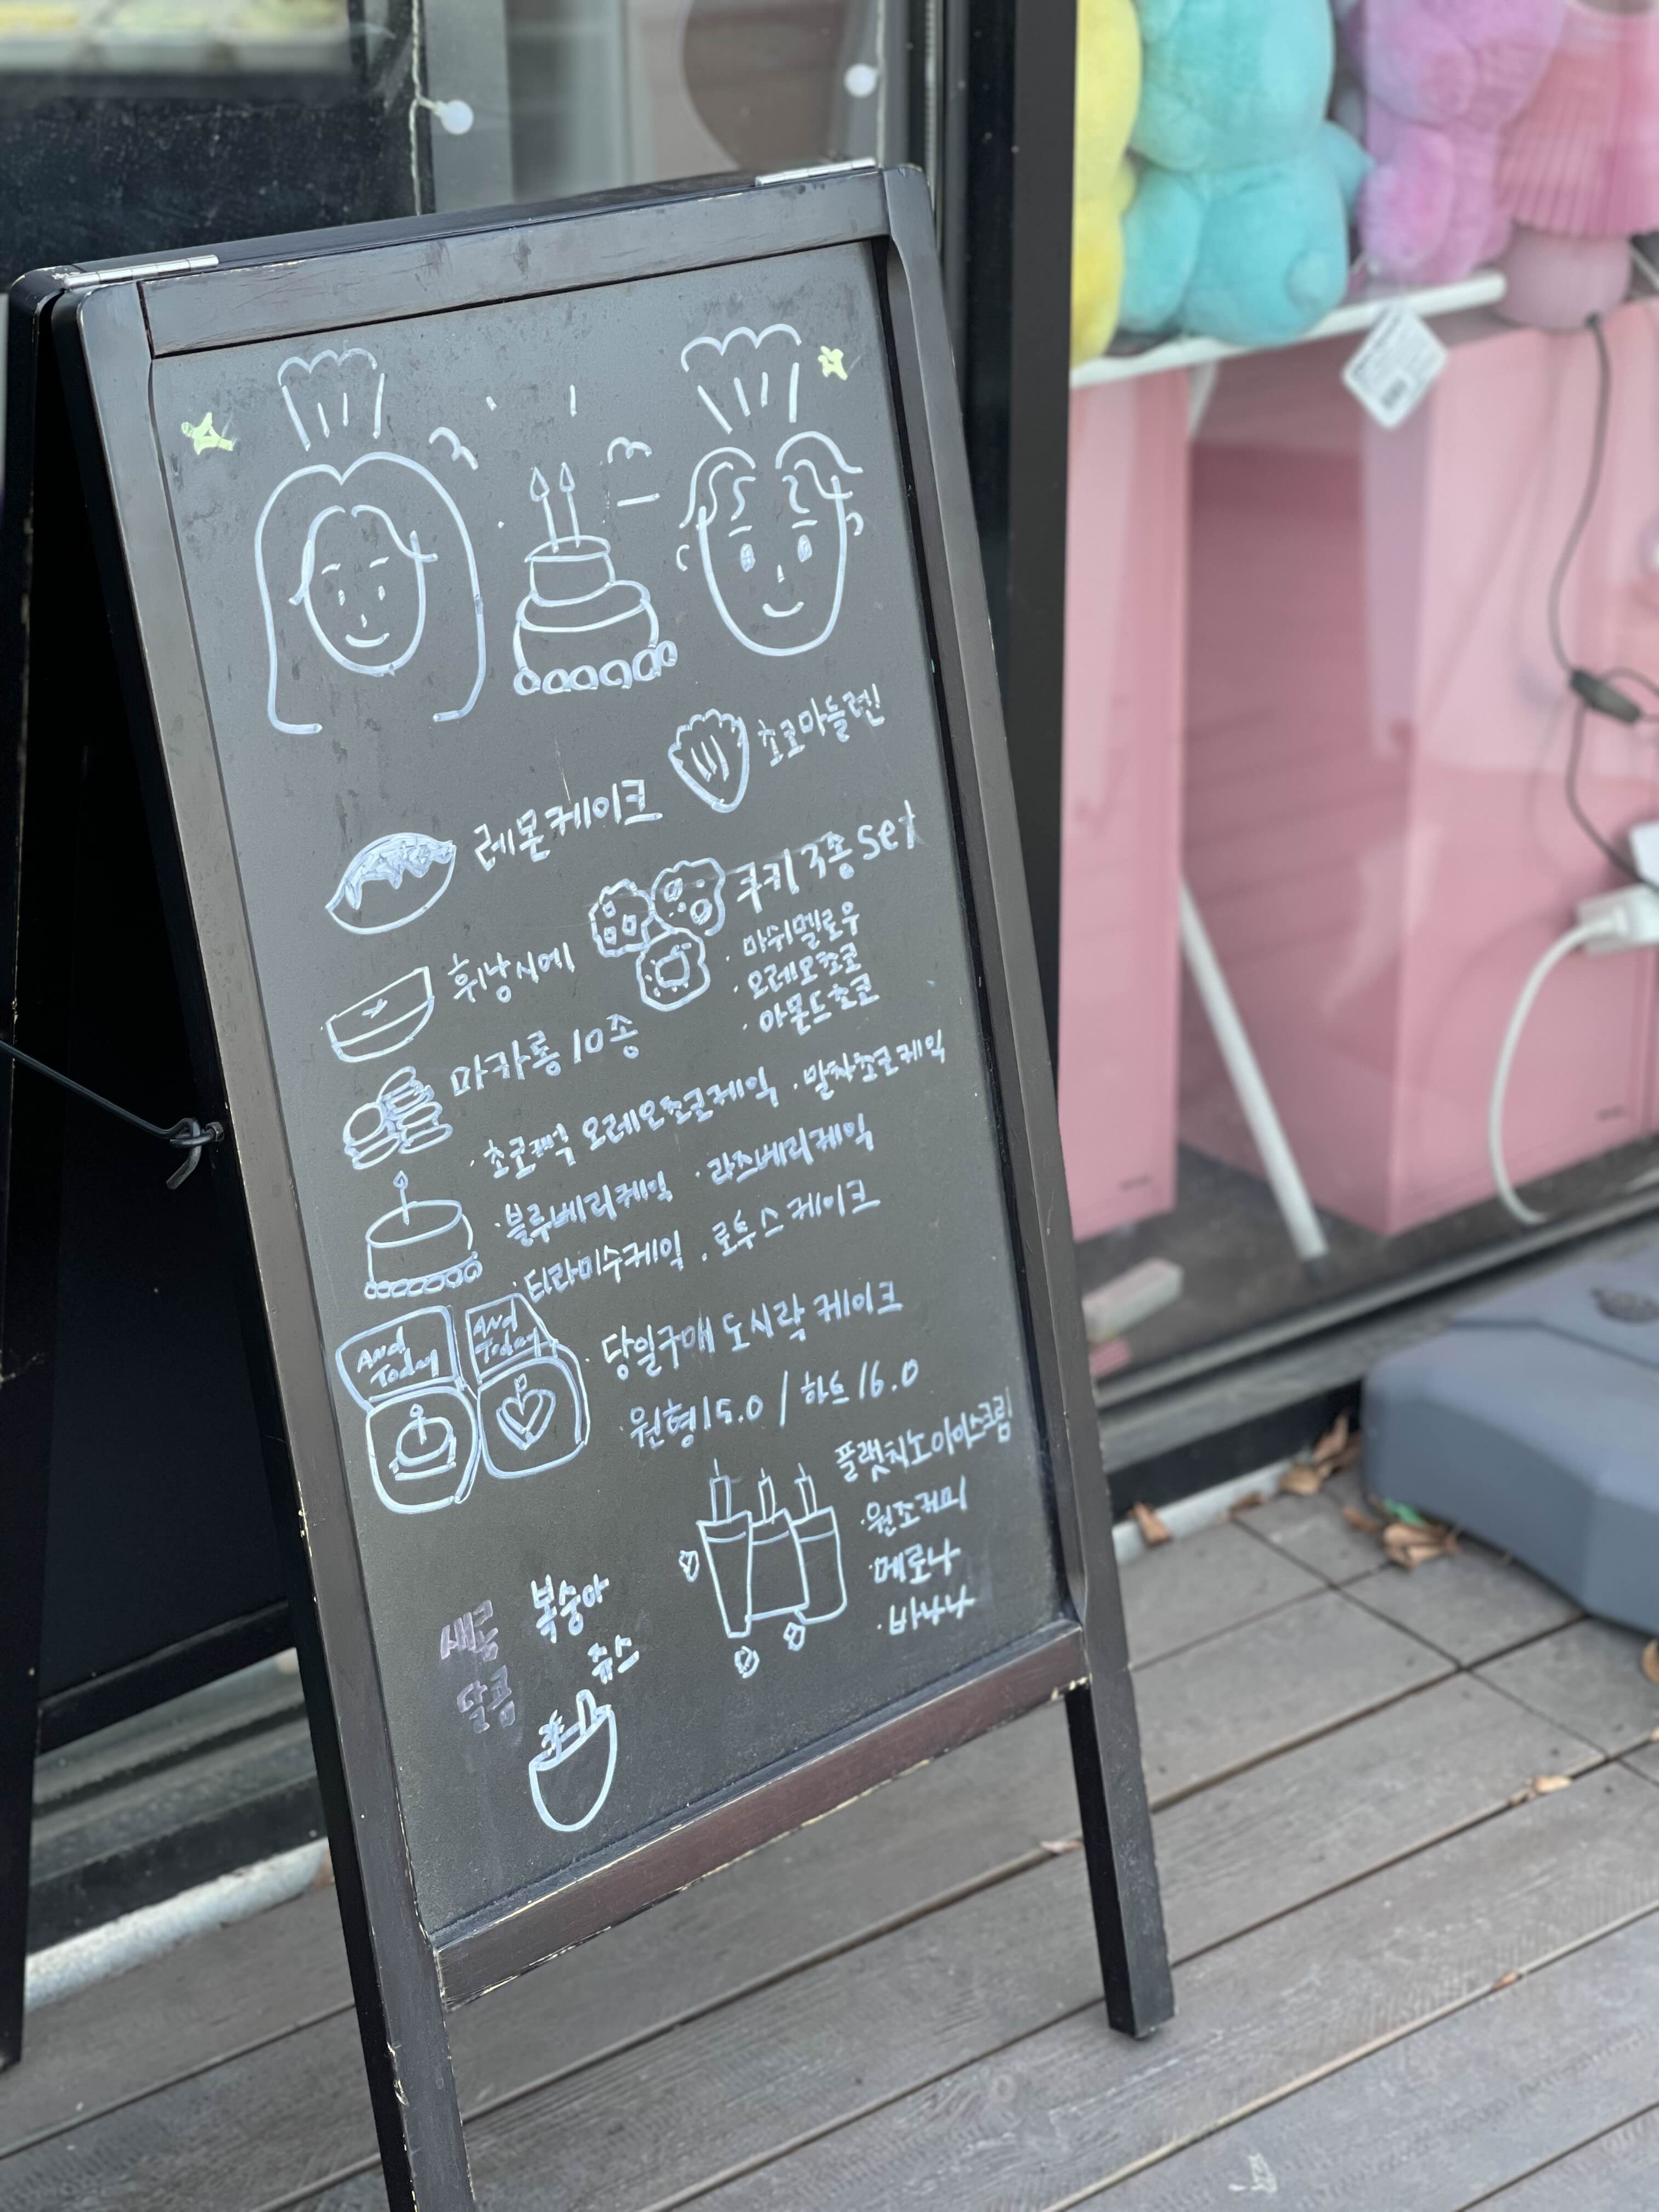 초코마들렌
레몬케이크
쿠키 3종 set
· 마쉬멜로우
· 오레오초코
· 아몬드초코
휘낭시에
마카롱 10종
· 초코퍽 오레오초코케익 · 말차초코케익
· 블루베리케익 · 라즈베리케익
· 티라미수케익 · 로투스케이크
And
Today
And
Today
· 당일구매 도시락 케이크
원형 15.0 / 하트 16.0
플랫치노 아이스크림
· 원조커피
· 메로나
· 바나나
새콤
달콤
복숭아
쥬스